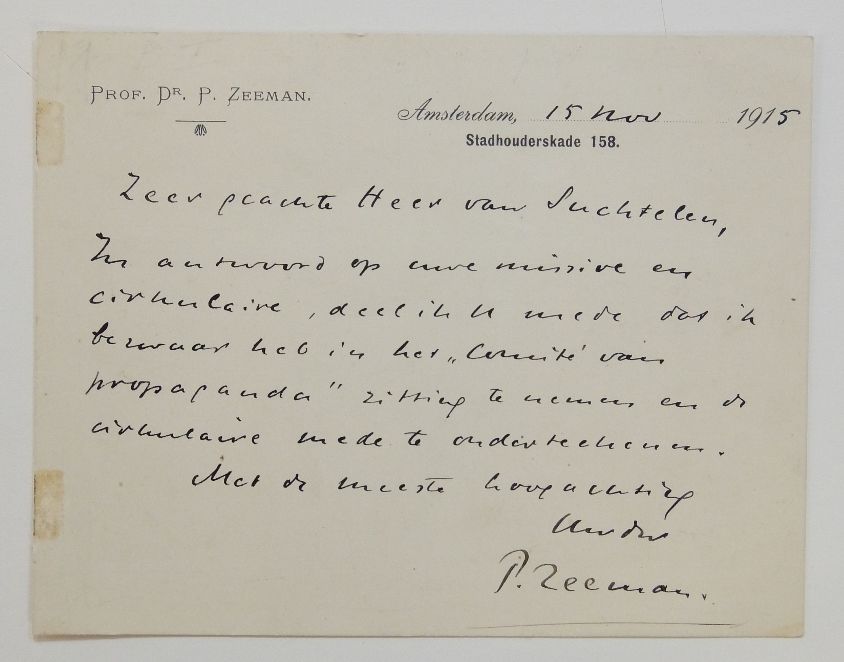 PROF. DR. P. ZEEMAN.
Amsterdam, 15 Nov 1915
Stadhouderskade 158.
Zeer geachte Heer van Suchtelen,
In antwoord op uwe missive en
cirkulaire, deel ik U mede dat ik
bezwaar heb in het „Comité van
propaganda" zitting te nemen en de
cirkulaire mede te onderteekenen.
Met de meeste hoogachting
Uw dw
P. Zeeman.